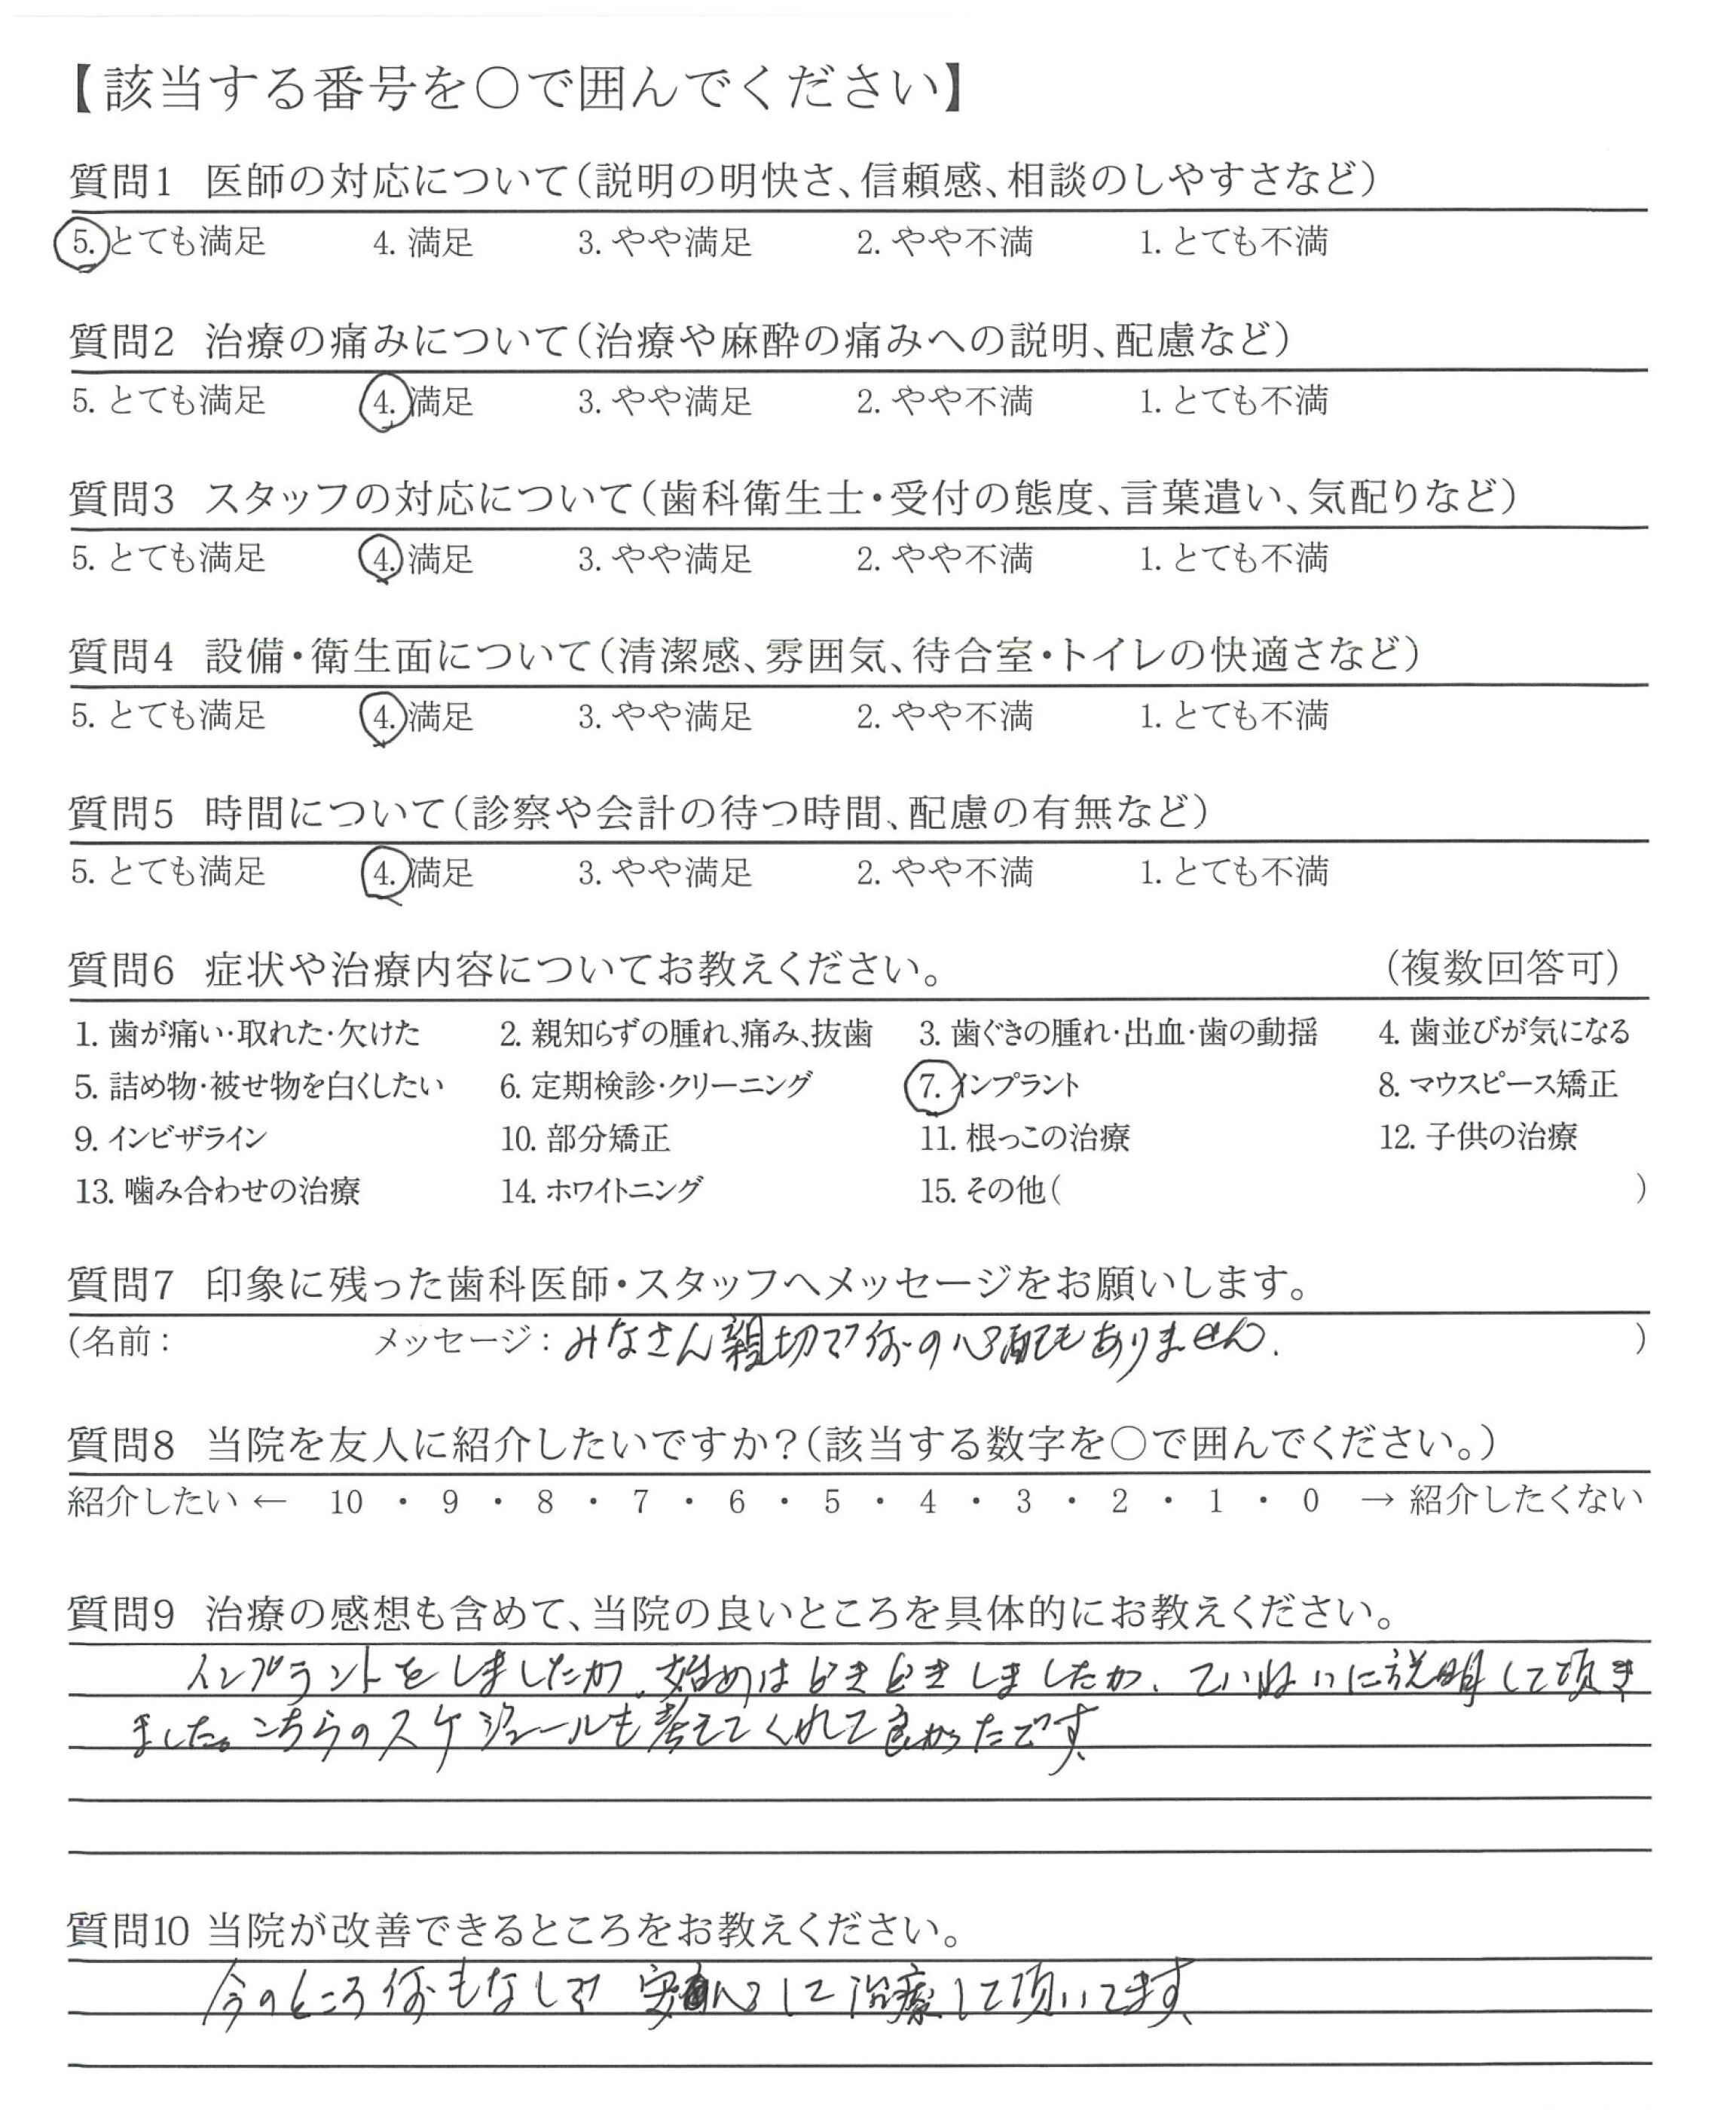 【該当する番号を〇で囲んでください】
質問1 医師の対応について(説明の明快さ、信頼感、相談のしやすさなど)
5. とても満足 4. 満足 3. やや満足 2. やや不満 1. とても不満
質問2 治療の痛みについて(治療や麻酔の痛みへの説明、配慮など)
5. とても満足 4. 満足 3. やや満足 2. やや不満 1. とても不満
質問3 スタッフの対応について(歯科衛生士・受付の態度、言葉遣い、気配りなど)
5. とても満足 4. 満足 3. やや満足 2. やや不満 1. とても不満
質問4 設備・衛生面について(清潔感、雰囲気、待合室・トイレの快適さなど)
5. とても満足 4. 満足 3. やや満足 2. やや不満 1. とても不満
質問5 時間について(診察や会計の待つ時間、配慮の有無など)
5. とても満足 4. 満足 3. やや満足 2. やや不満 1. とても不満
質問6 症状や治療内容についてお教えください。 (複数回答可)
1. 歯が痛い・取れた・欠けた 2. 親知らずの腫れ、痛み、抜歯 3. 歯ぐきの腫れ・出血・歯の動揺 4. 歯並びが気になる
5. 詰め物・被せ物を白くしたい 6. 定期検診・クリーニング 7. インプラント 8. マウスピース矯正
9. インビザライン 10. 部分矯正 11. 根っこの治療 12. 子供の治療
13. 噛み合わせの治療 14. ホワイトニング 15. その他( )
質問7 印象に残った歯科医師・スタッフへメッセージをお願いします。
(名前: メッセージ: みなさん親切で何の心配もありません. )
質問8 当院を友人に紹介したいですか?(該当する数字を〇で囲んでください。)
紹介したい ← 10 ・ 9 ・ 8 ・ 7 ・ 6 ・ 5 ・ 4 ・ 3 ・ 2 ・ 1 ・ 0 → 紹介したくない
質問9 治療の感想も含めて、当院の良いところを具体的にお教えください。
インプラントをしましたが、始めはどきどきしましたが、ていねいに説明して頂き
ました。こちらのスケジュールも考えてくれて良かったです、
質問10 当院が改善できるところをお教えください。
今のところ何もなしで 安心して治療して頂いてます、